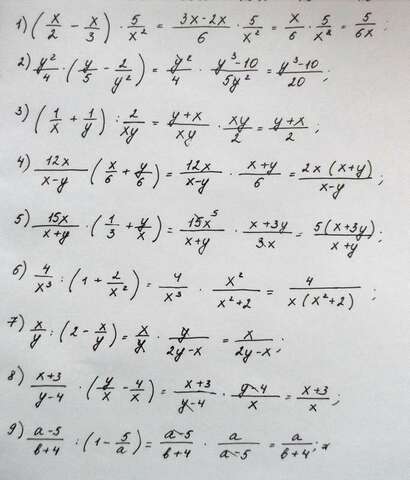 1) (x/2 - x/3) · 5/x² = (3x-2x)/6 · 5/x² = x/6 · 5/x² = 5/6x ;
2) y²/4 · (y/5 - 2/y²) = y²/4 · (y³-10)/5y² = (y³-10)/20 ;
3) (1/x + 1/y) : 2/xy = (y+x)/xy · xy/2 = (y+x)/2 ;
4) 12x/(x-y) · (x/6 + y/6) = 12x/(x-y) · (x+y)/6 = 2x(x+y)/(x-y) ;
5) 15x/(x+y) · (1/3 + y/x) = 15x⁵/(x+y) · (x+3y)/3x = 5(x+3y)/(x+y) ;
6) 4/x³ : (1 + 2/x²) = 4/x³ · x²/(x²+2) = 4/(x(x²+2)) ;
7) x/y : (2 - x/y) = x/y · y/(2y-x) = x/(2y-x) ;
8) (x+3)/(y-4) · (y/x - 4/x) = (x+3)/(y-4) · (y-4)/x = (x+3)/x ;
9) (a-5)/(b+4) : (1 - 5/a) = (a-5)/(b+4) · a/(a-5) = a/(b+4) ;